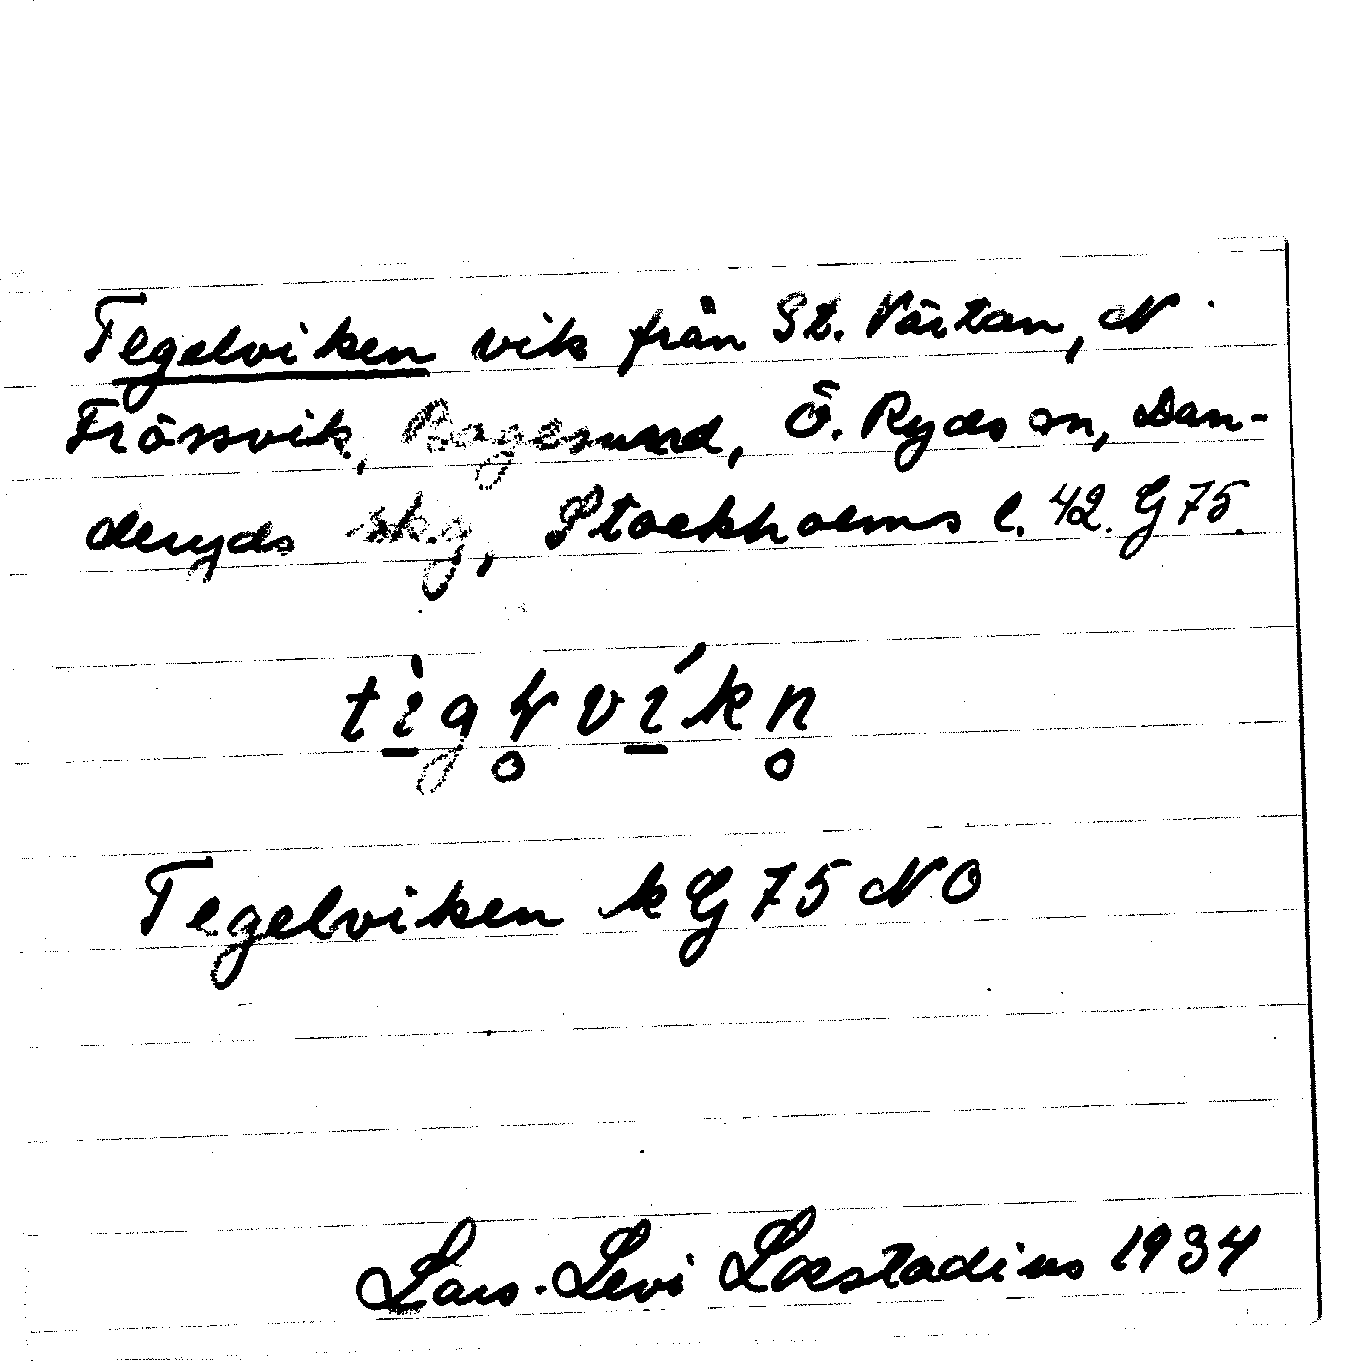 Tegelviken vik från St. Värtan, N
Frösvik, Bogesund, Ö. Ryds sn, Dan-
deryds skg, Stockholms l. 42. G 75.
Tegelviken k G 75 NO
Lars-Levi Læstadius 1934